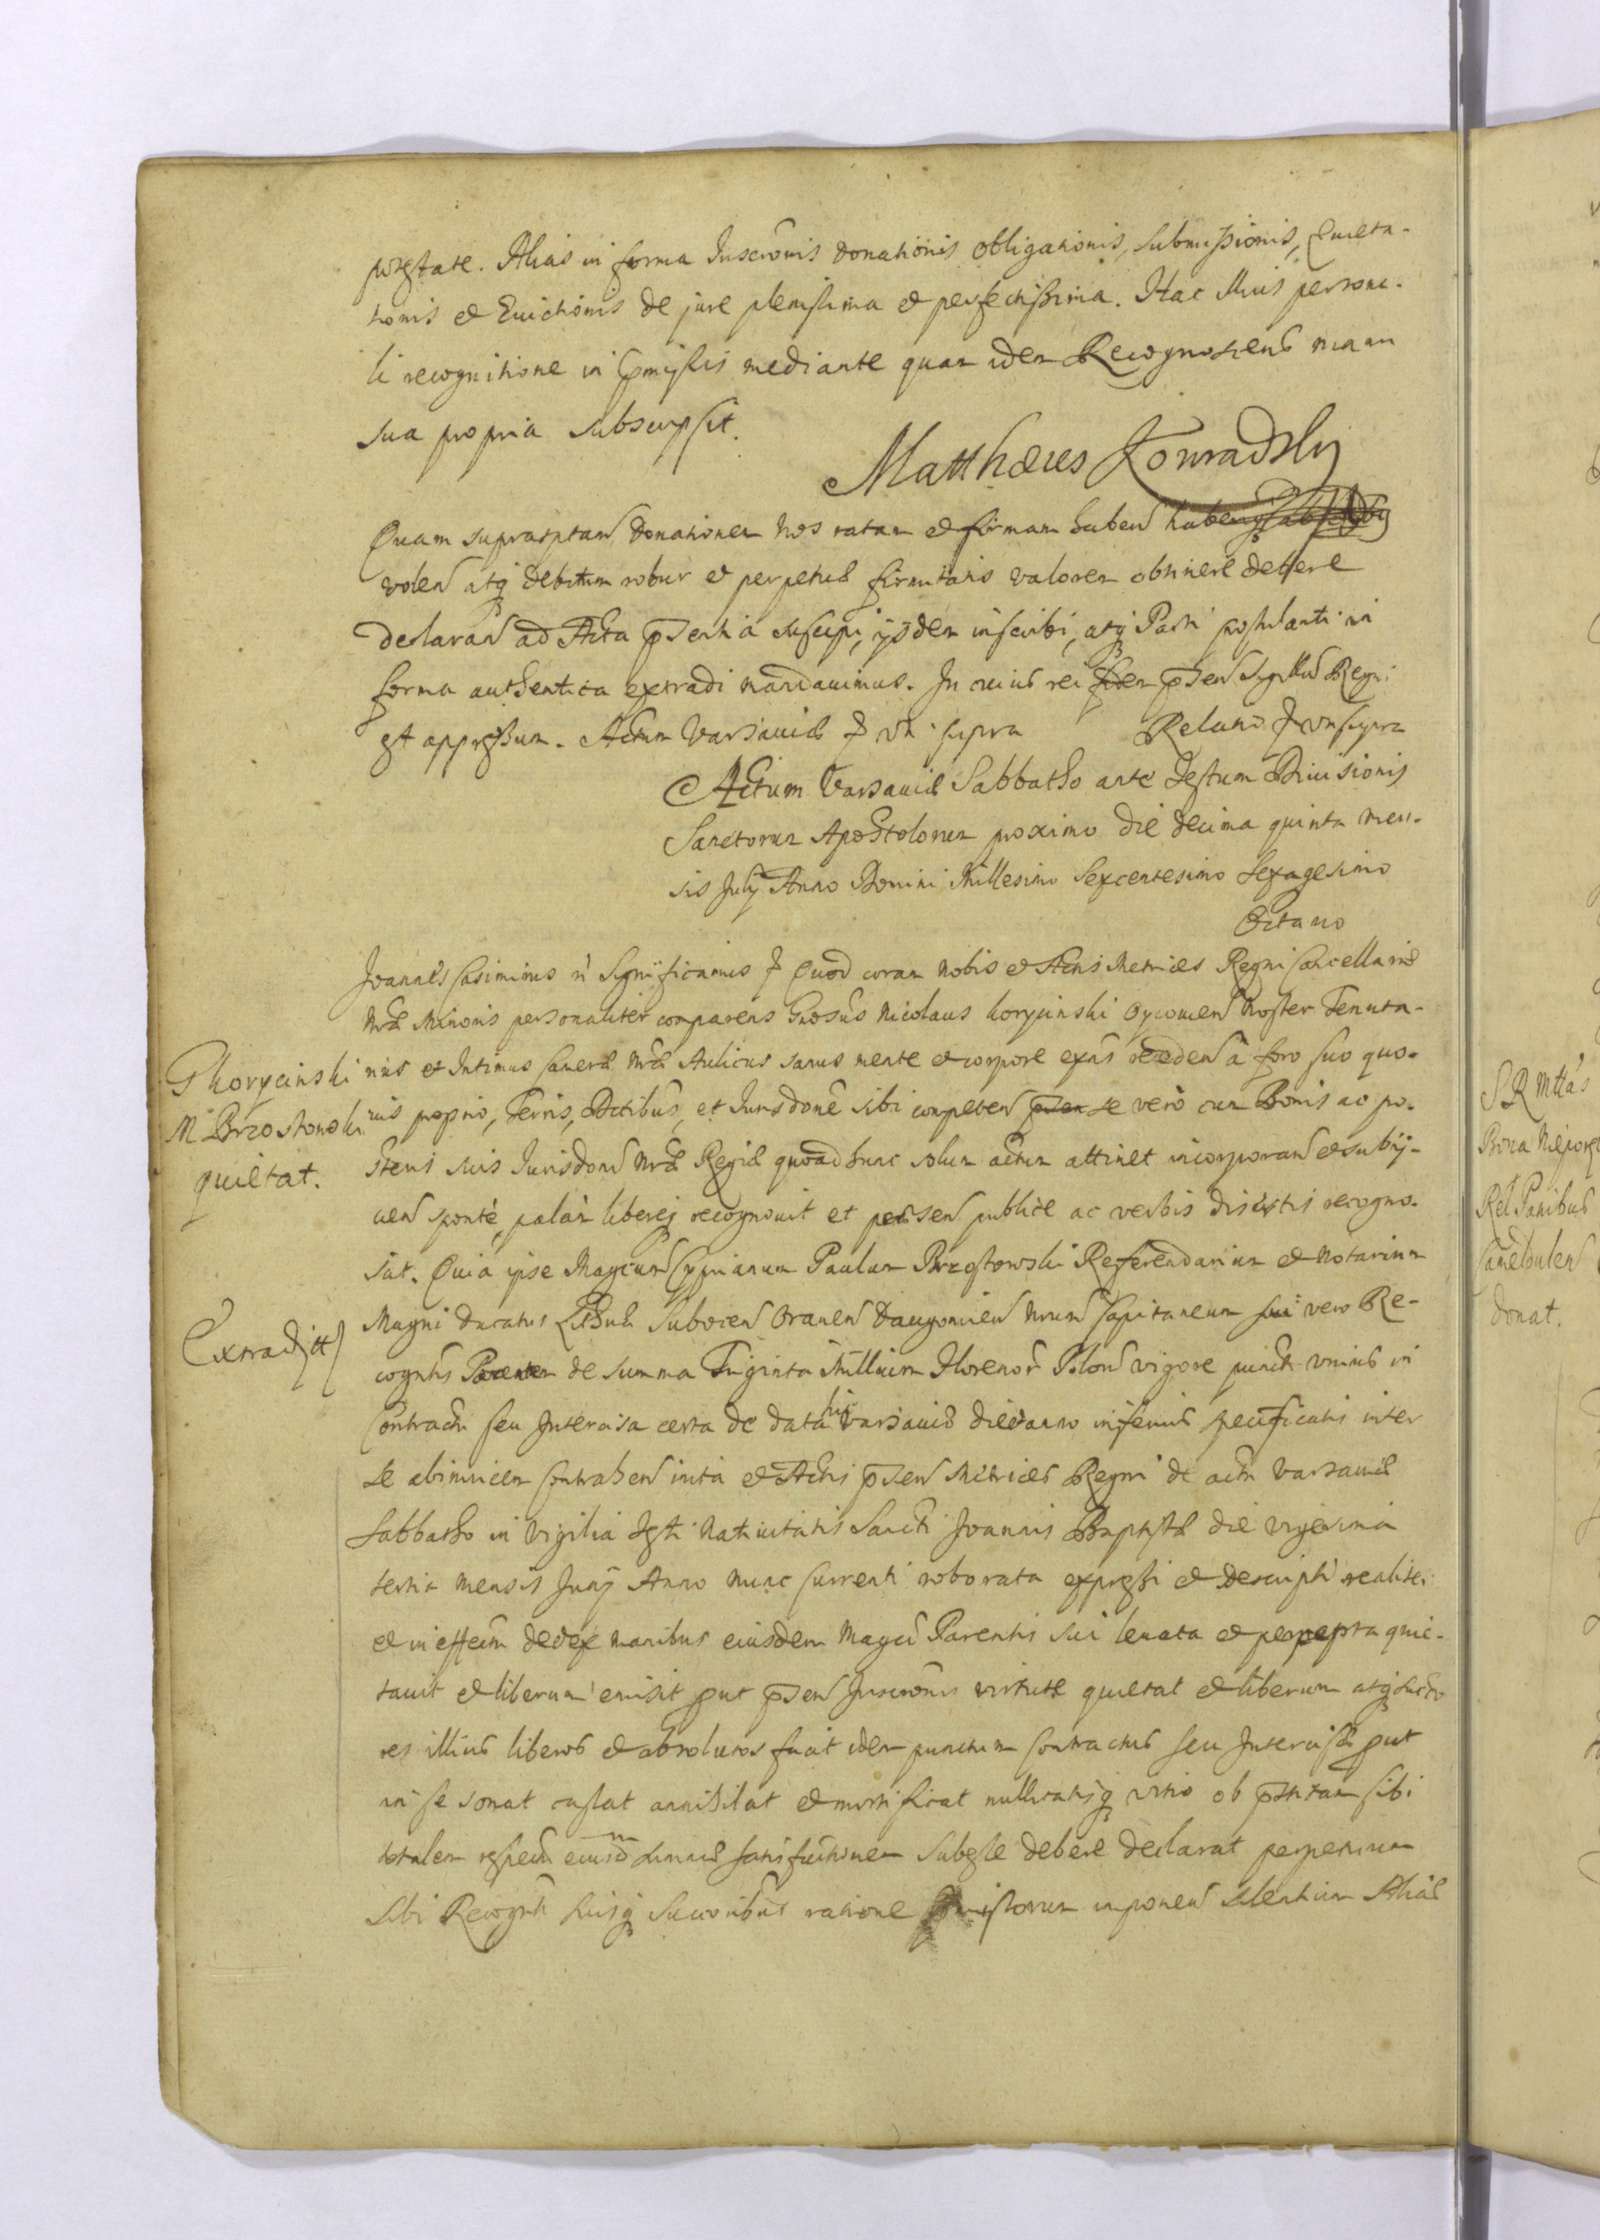 potestate. Alias in forma Inscrōnis donationis obligationis, submissionis, Quieta-
tionis et Evictionis de jure plenissima et perfectissima. Hac illius persona-
li recognitione in p̄missis mediante quam idem Recognoscens manu
sua propria subscripsit.
Matthæus Konradzky
Quam suprascptam donationem Nos ratam et firmam haben haben
volen atq debitum robur et perpetuæ firmitatis valorem obtinere debere
declaran ad Acta p̄sentia suscipi, ijsdem inscribi, atq Parti postulanti in
forma authentica extradi mandavimus. In cuius rei fidem p̄sen Sigillum Regni
est appressum. Actum Varsaviæ ut supra Relatio ut supra
Actum Varsaviæ Sabbatho ante Festum Divisionis
Sanctorum Apostolorum proximo die decima quinta men-
sis July Anno Domini Millesimo Sexcentesimo Sexagesimo
Octavo
Joannes Casimirus Significamus Quod coram Nobis et Actis Metrices Regni Cancellariæ
Nræ Minoris personaliter comparens Gnosus Nicolaus Korycinski Oycouien Noster Tenuta-
rius et Intimus Cameræ Nræ Aulicus sanus mente et corpore exns recedens à foro suo quo-
vis proprio, Terris, Dictibus, et Jurisdone sibi competen se vero cum Bonis ac po-
steris suis Jurisdoni Nræ Regiæ quoad hunc solum actum attinet incorporans et subij-
ciens sponte, palàm libereq recognovit et p̄sen publice ac verbis disertis recogno-
scit. Quia ipse Magcum Cyprianum Paulum Brzostowski Referendarium et Notarium
Magni Ducatus Lithuæ Suboien Oranen Daugouien Nrum Capitaneum sui vero Re-
cognitis Parentem de summa Triginta Millium Florenor Polon vigore puncti unius in
Contractu seu Intercisa certa de data hic Varsaviæ die et anno inferius specificatis inter
se abinvicem contrahen inita et Actis p̄sen Metrices Regni de actu Varsaviæ
Sabbatho in Vigilia Festi Nativitatis Sancti Joannis Baptistæ die vigesima
tertia mensis Juny Anno nunc currenti roborata expressi et descripti realiter
et in effectu de et ex manibus eiusdem Magci Parentis sui levata et percepta quie-
tavit et liberum emisit put p̄sen Inscronis virtute quietat et liberum atq succo
res illius liberos et absolutos facit idem punctum contractus seu Intercisæ put
in se sonat cassat annihilat et mortificat nullitatisq vitio ob p̄stitam sibi
totalem respectu eiusdm summæ satisfactionem subesse debere declarat perpetuum
sibi Recogniti suisq Successoribus ratione p̄missorum imponens silentium Alias
Korycinski
M Brzostowski
quietat.
Extradit
S R Mttas
Bona Nieporę
Rel Patribus
Camedulen
donat.